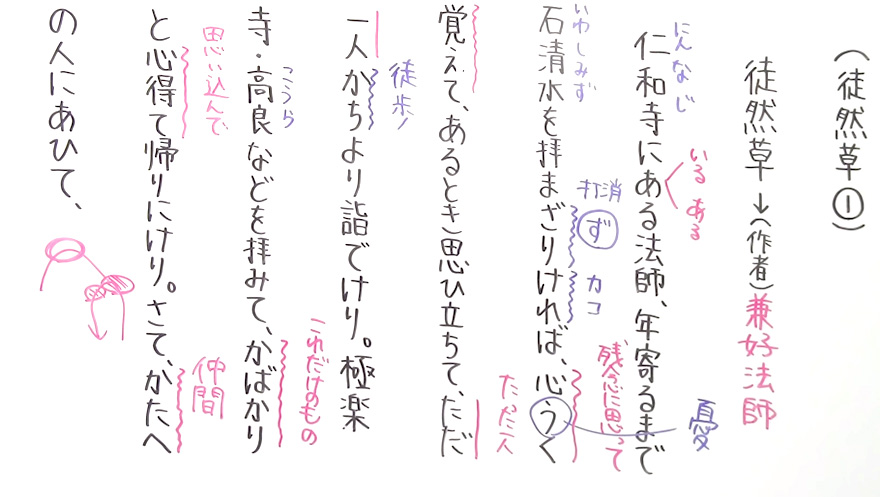 (徒然草①)
徒然草→(作者)兼好法師
にんなじ
いる ある
仁和寺にある法師、年寄るまで
憂
いわしみず
打消
ず
カコ
残念に思って
石清水を拝まざりければ、心うく
覚えて、あるとき思ひ立ちて、ただ
たった一人
徒歩
一人かちより詣でけり。極楽
こうら
これだけのもの
寺・高良などを拝みて、かばかり
思い込んで
仲間
と心得て帰りにけり。さて、かたへ
の人にあひて、